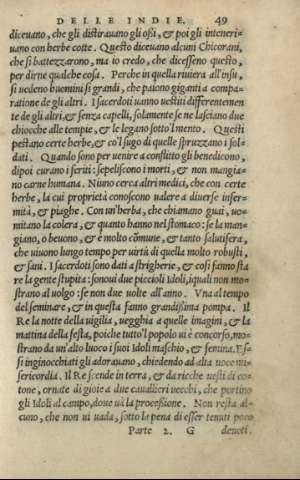 DELLE INDIE. 49
diceuano, che gli distirauano gli oßi, & poi gli inteneri-
uano con herbe cotte. Questo diceuano alcuni Chicorani,
che si battezzarono, ma io credo, che dicessero questo,
per dirne qualche cosa. Perche in quella riuiera all'insu,
si uedeno huomini si grandi, che paiono giganti a compa-
ratione de gli altri. I sacerdoti uanno uestiti differentemen
te de gli altri, & senza capelli, solamente se ne lasciano due
chiocche alle tempie, & le legano sotto'l mento. Questi
pestano certe herbe, & co'l sugo di quelle spruzzano i sol-
dati. Quando sono per uenire a conflitto gli benedicono,
dipoi curano i feriti: sepeliscono i morti, & non mangia-
no carne humana. Niuno cerca altri medici, che con certe
herbe, la cui proprietà conoscono ualere a diuerse infer-
mità, & piaghe. Con un'herba, che chiamano guai, uo-
mitano la colera, & quanto hanno nel stomaco: se la man-
giano, o beuono, & è molto cõmune, & tanto salutifera,
che uiuono lungo tempo per uirtù di quella molto robusti,
& sani. I sacerdoti sono dati a strigherie, & cosi fanno sta
re la gente stupita: sonoui due piccioli Idoli, iquali non mo
strano al uolgo: se non due uolte all'anno. Vna al tempo
del seminare, & in questa fanno grandissima pompa. Il
Re la notte della uigilia, uegghia a quelle imagini, & la
mattina della festa, poiche tutto'l popolo ui è concorso, mo-
strano da un'alto luoco i suoi Idoli maschio, & femina. Es-
si inginocchiati gli adorauano, chiedendo ad alta uoce mi-
sericordia. Il Re scende in terra, & da ricche uesti di co-
tone, ornate di gioie a due cauallieri uecchi, che portino
gli Idoli al campo, doue uà la processione. Non resta al-
cuno, che non ui uada, sotto la pena di esser tenuti poco
Parte 2. G deuoti.